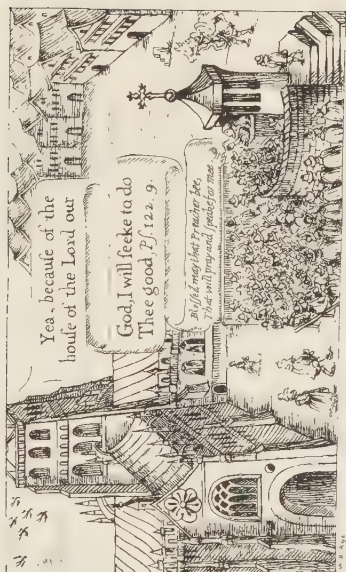 Yea, becauſe of the
houſe of the Lord our
God, I will ſeeke to do
Thee good Pſ. 122. 9.
Bleſſed may that Preacher bee,
That will pray and ſpeake for mee.
W B Rye